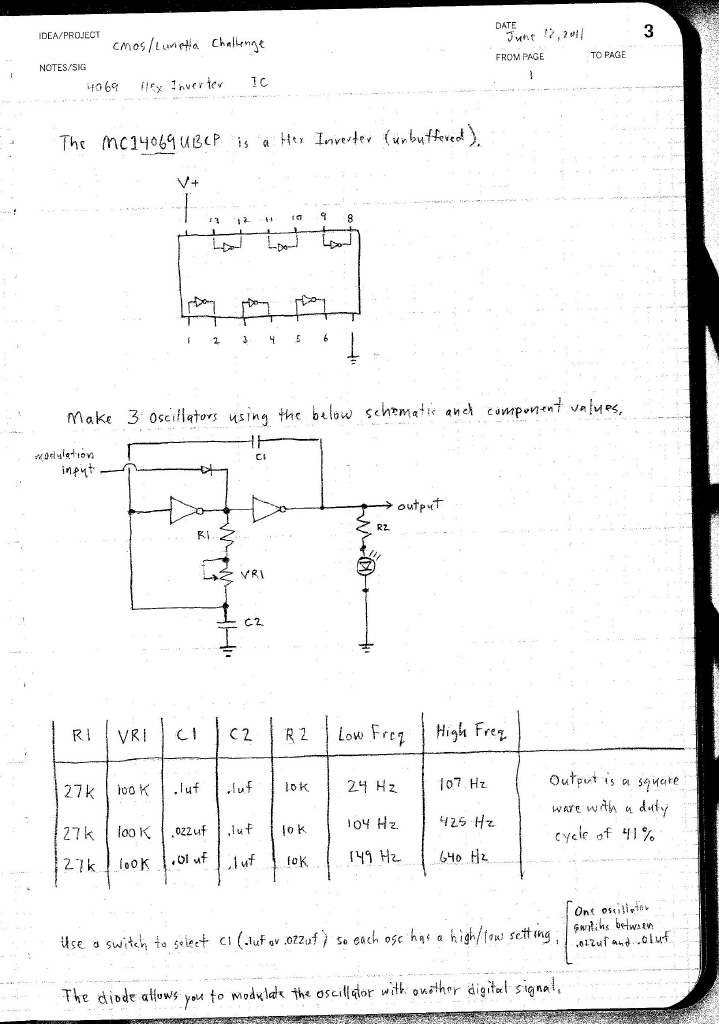 IDEA/PROJECT
CMOS/Lunetta Challenge
DATE
June 12, 2011
3
NOTES/SIG
4069 Hex Inverter IC
FROM PAGE
1
TO PAGE
The MC14069UBCP is a Hex Inverter (unbuffered).
V+
13 12 11 10 9 8
1 2 3 4 5 6
Make 3 oscillators using the below schematic and component values.
modulation
input
C1
output
R1
R2
VR1
C2
R1 VR1 C1 C2 R2 Low Freq High Freq
27k 100K .1uf .1uf 10K 24 Hz 107 Hz
27k 100K .022uf .1uf 10K 104 Hz 425 Hz
27k 100K .01uf .1uf 10K 149 Hz 640 Hz
Output is a square
wave with a duty
cycle of 41%
Use a switch to select C1 (.1uf or .022uf) so each osc has a high/low setting.
One oscillator
switchs between
.022uf and .01uf
The diode allows you to modulate the oscillator with another digital signal.